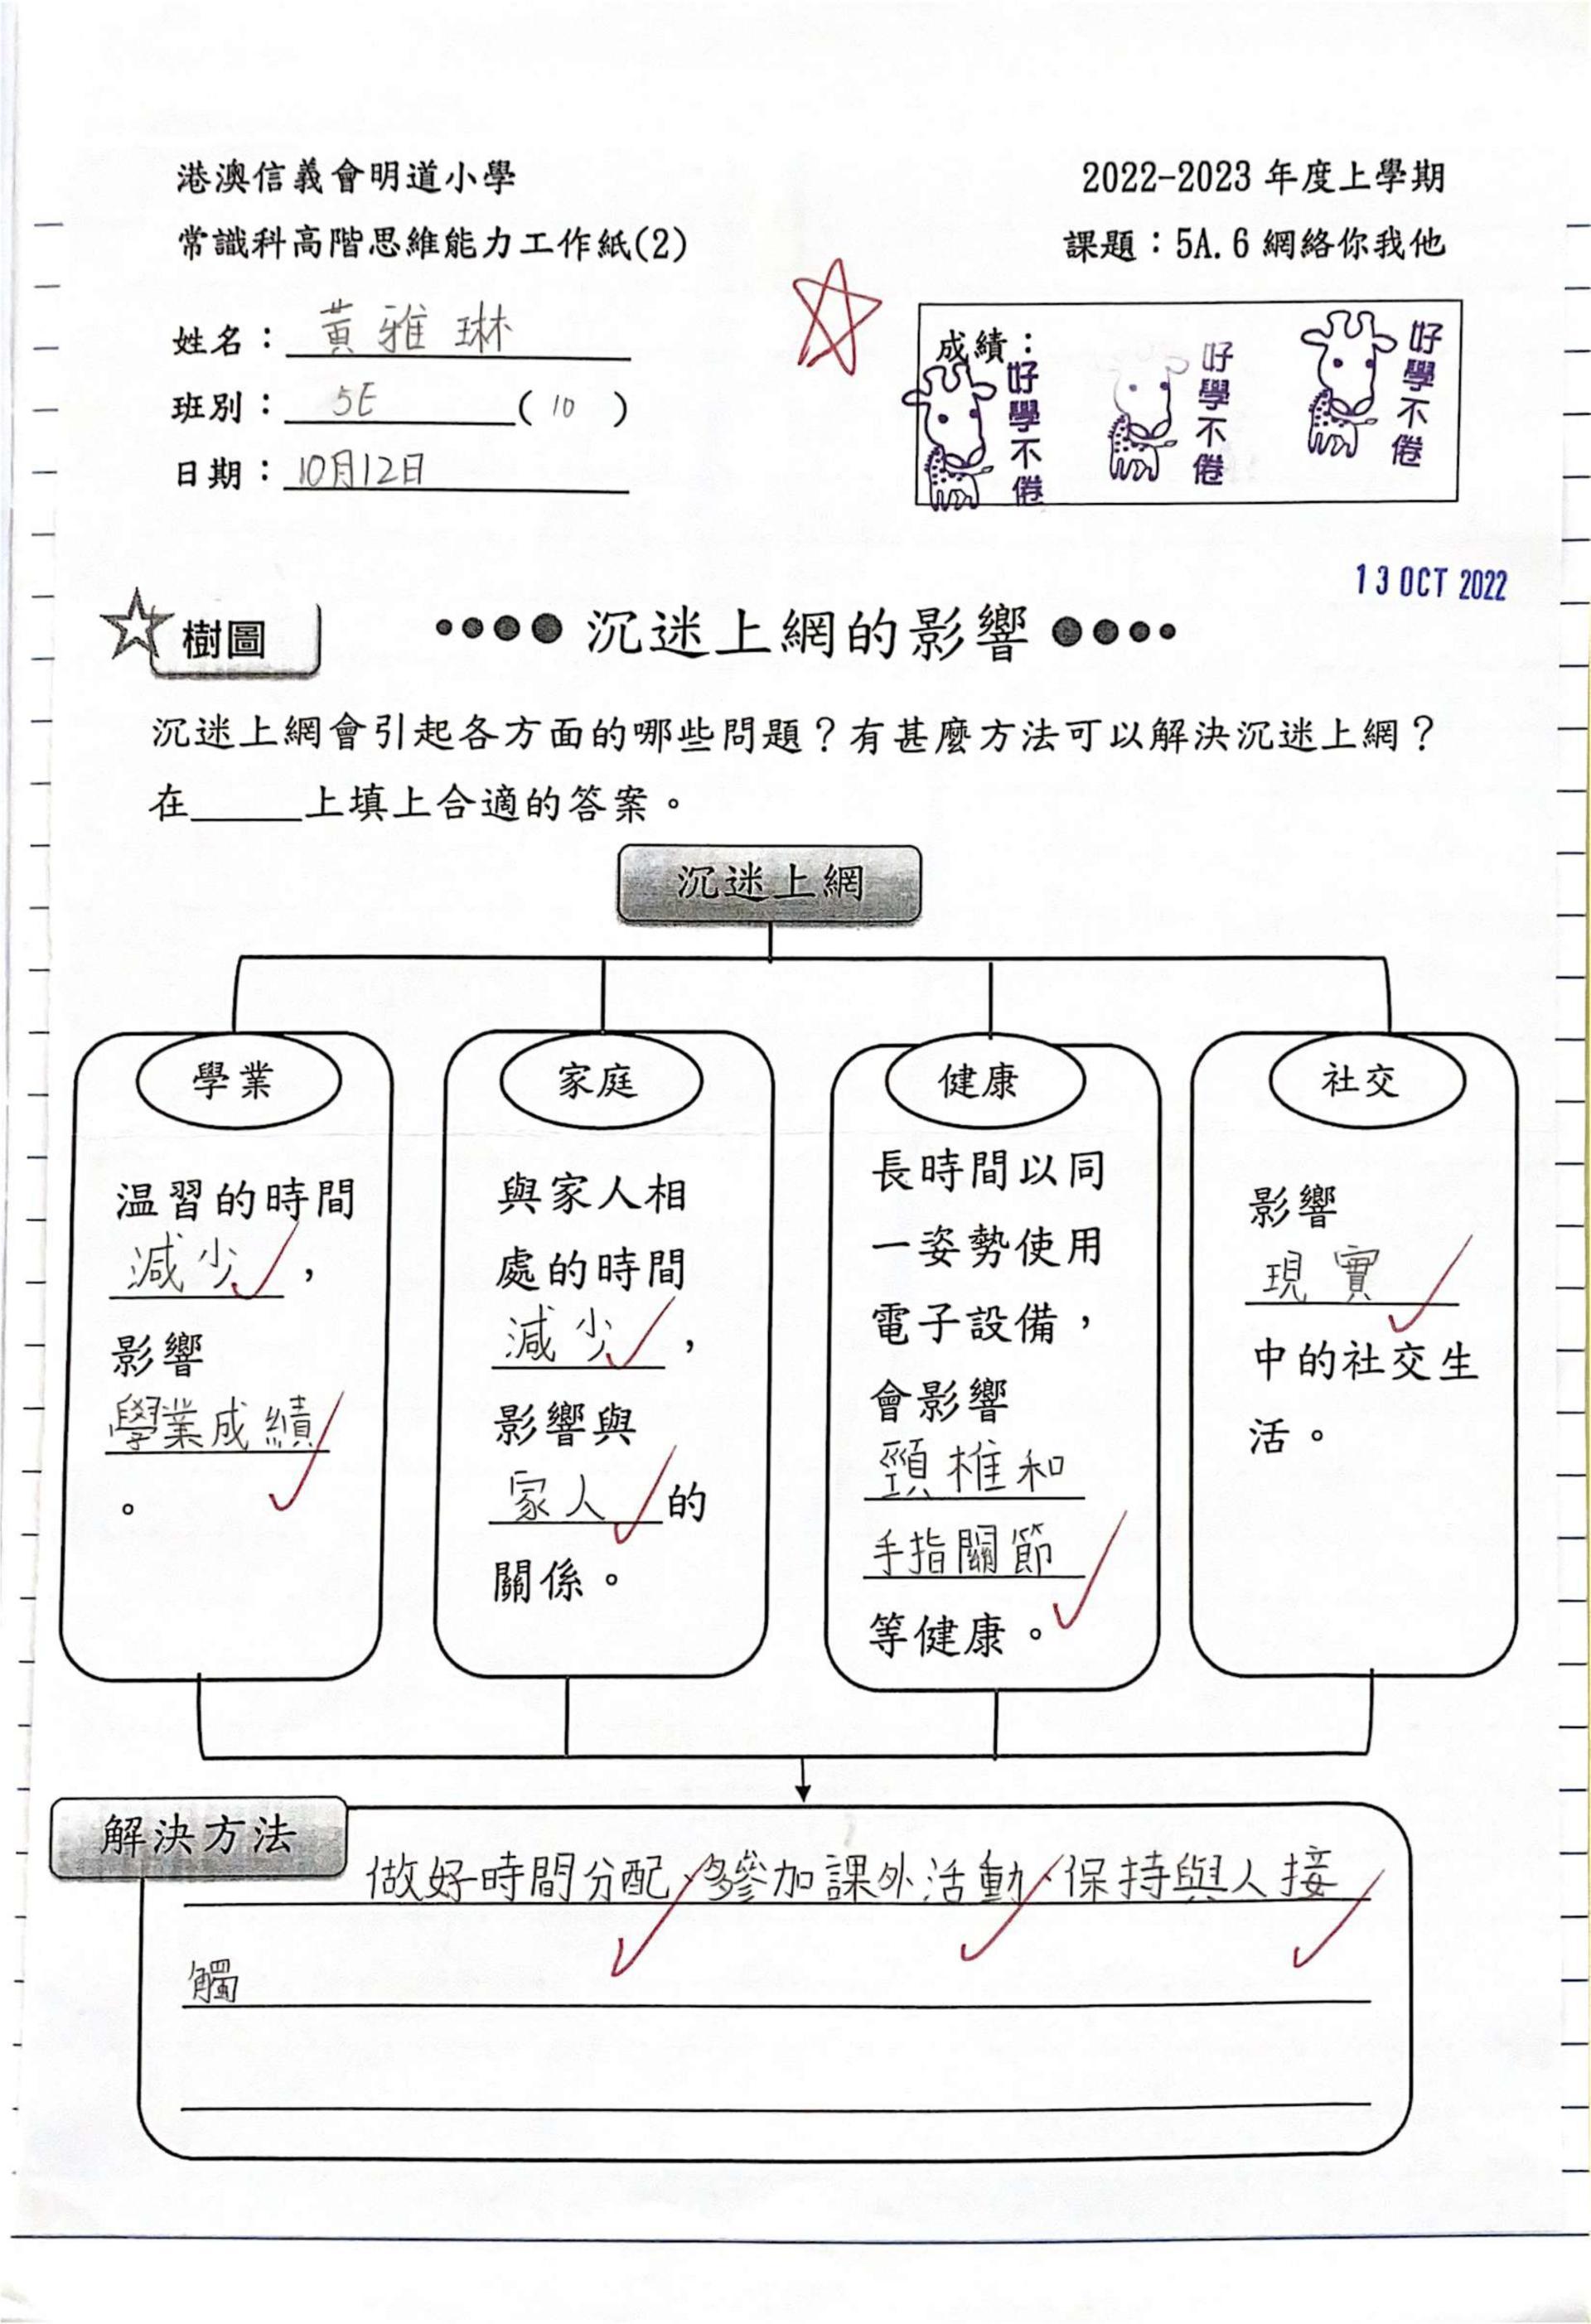 港澳信義會明道小學
2022-2023 年度上學期
常識科高階思維能力工作紙(2)
課題：5A.6 網絡你我他
姓名：黃雅琳
班別：5E ( 10 )
日期：10月12日
成績：
好學不倦
好學不倦
好學不倦
13 OCT 2022
樹圖
沉迷上網的影響
沉迷上網會引起各方面的哪些問題？有甚麼方法可以解決沉迷上網？
在_____上填上合適的答案。
沉迷上網
學業
温習的時間
減少，
影響
學業成績
。
家庭
與家人相
處的時間
減少，
影響與
家人的
關係。
健康
長時間以同
一姿勢使用
電子設備，
會影響
頸椎和
手指關節
等健康。
社交
影響
現實
中的社交生
活。
解決方法
做好時間分配、多參加課外活動、保持與人接
觸